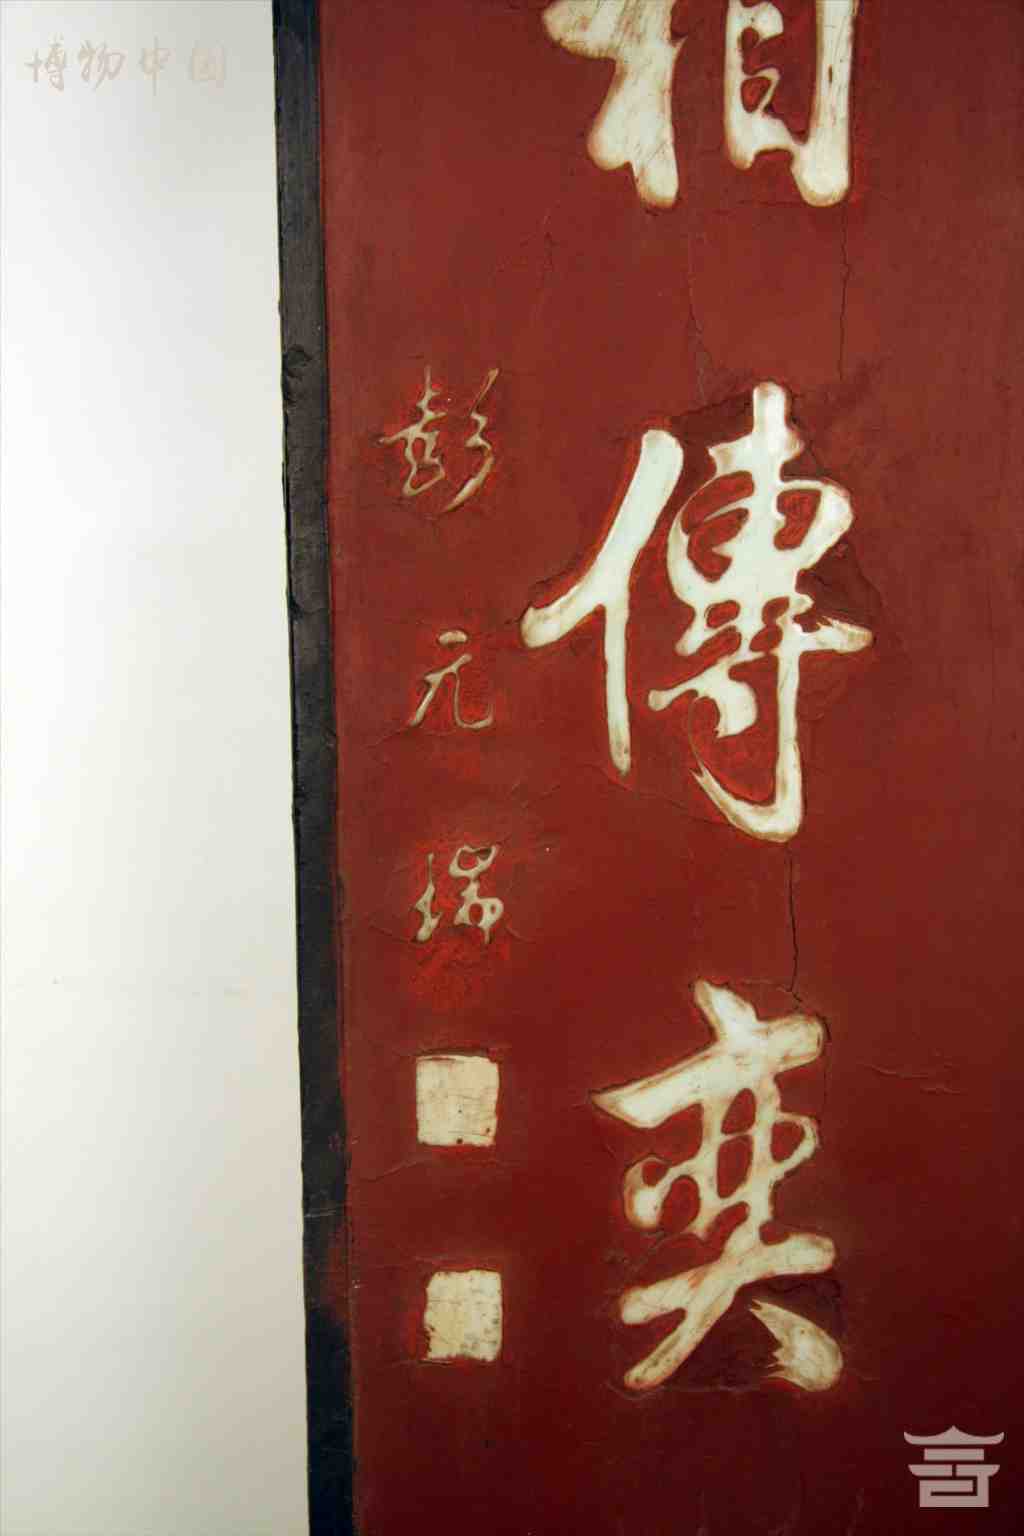 相傳奕
彭元瑞
博物中国